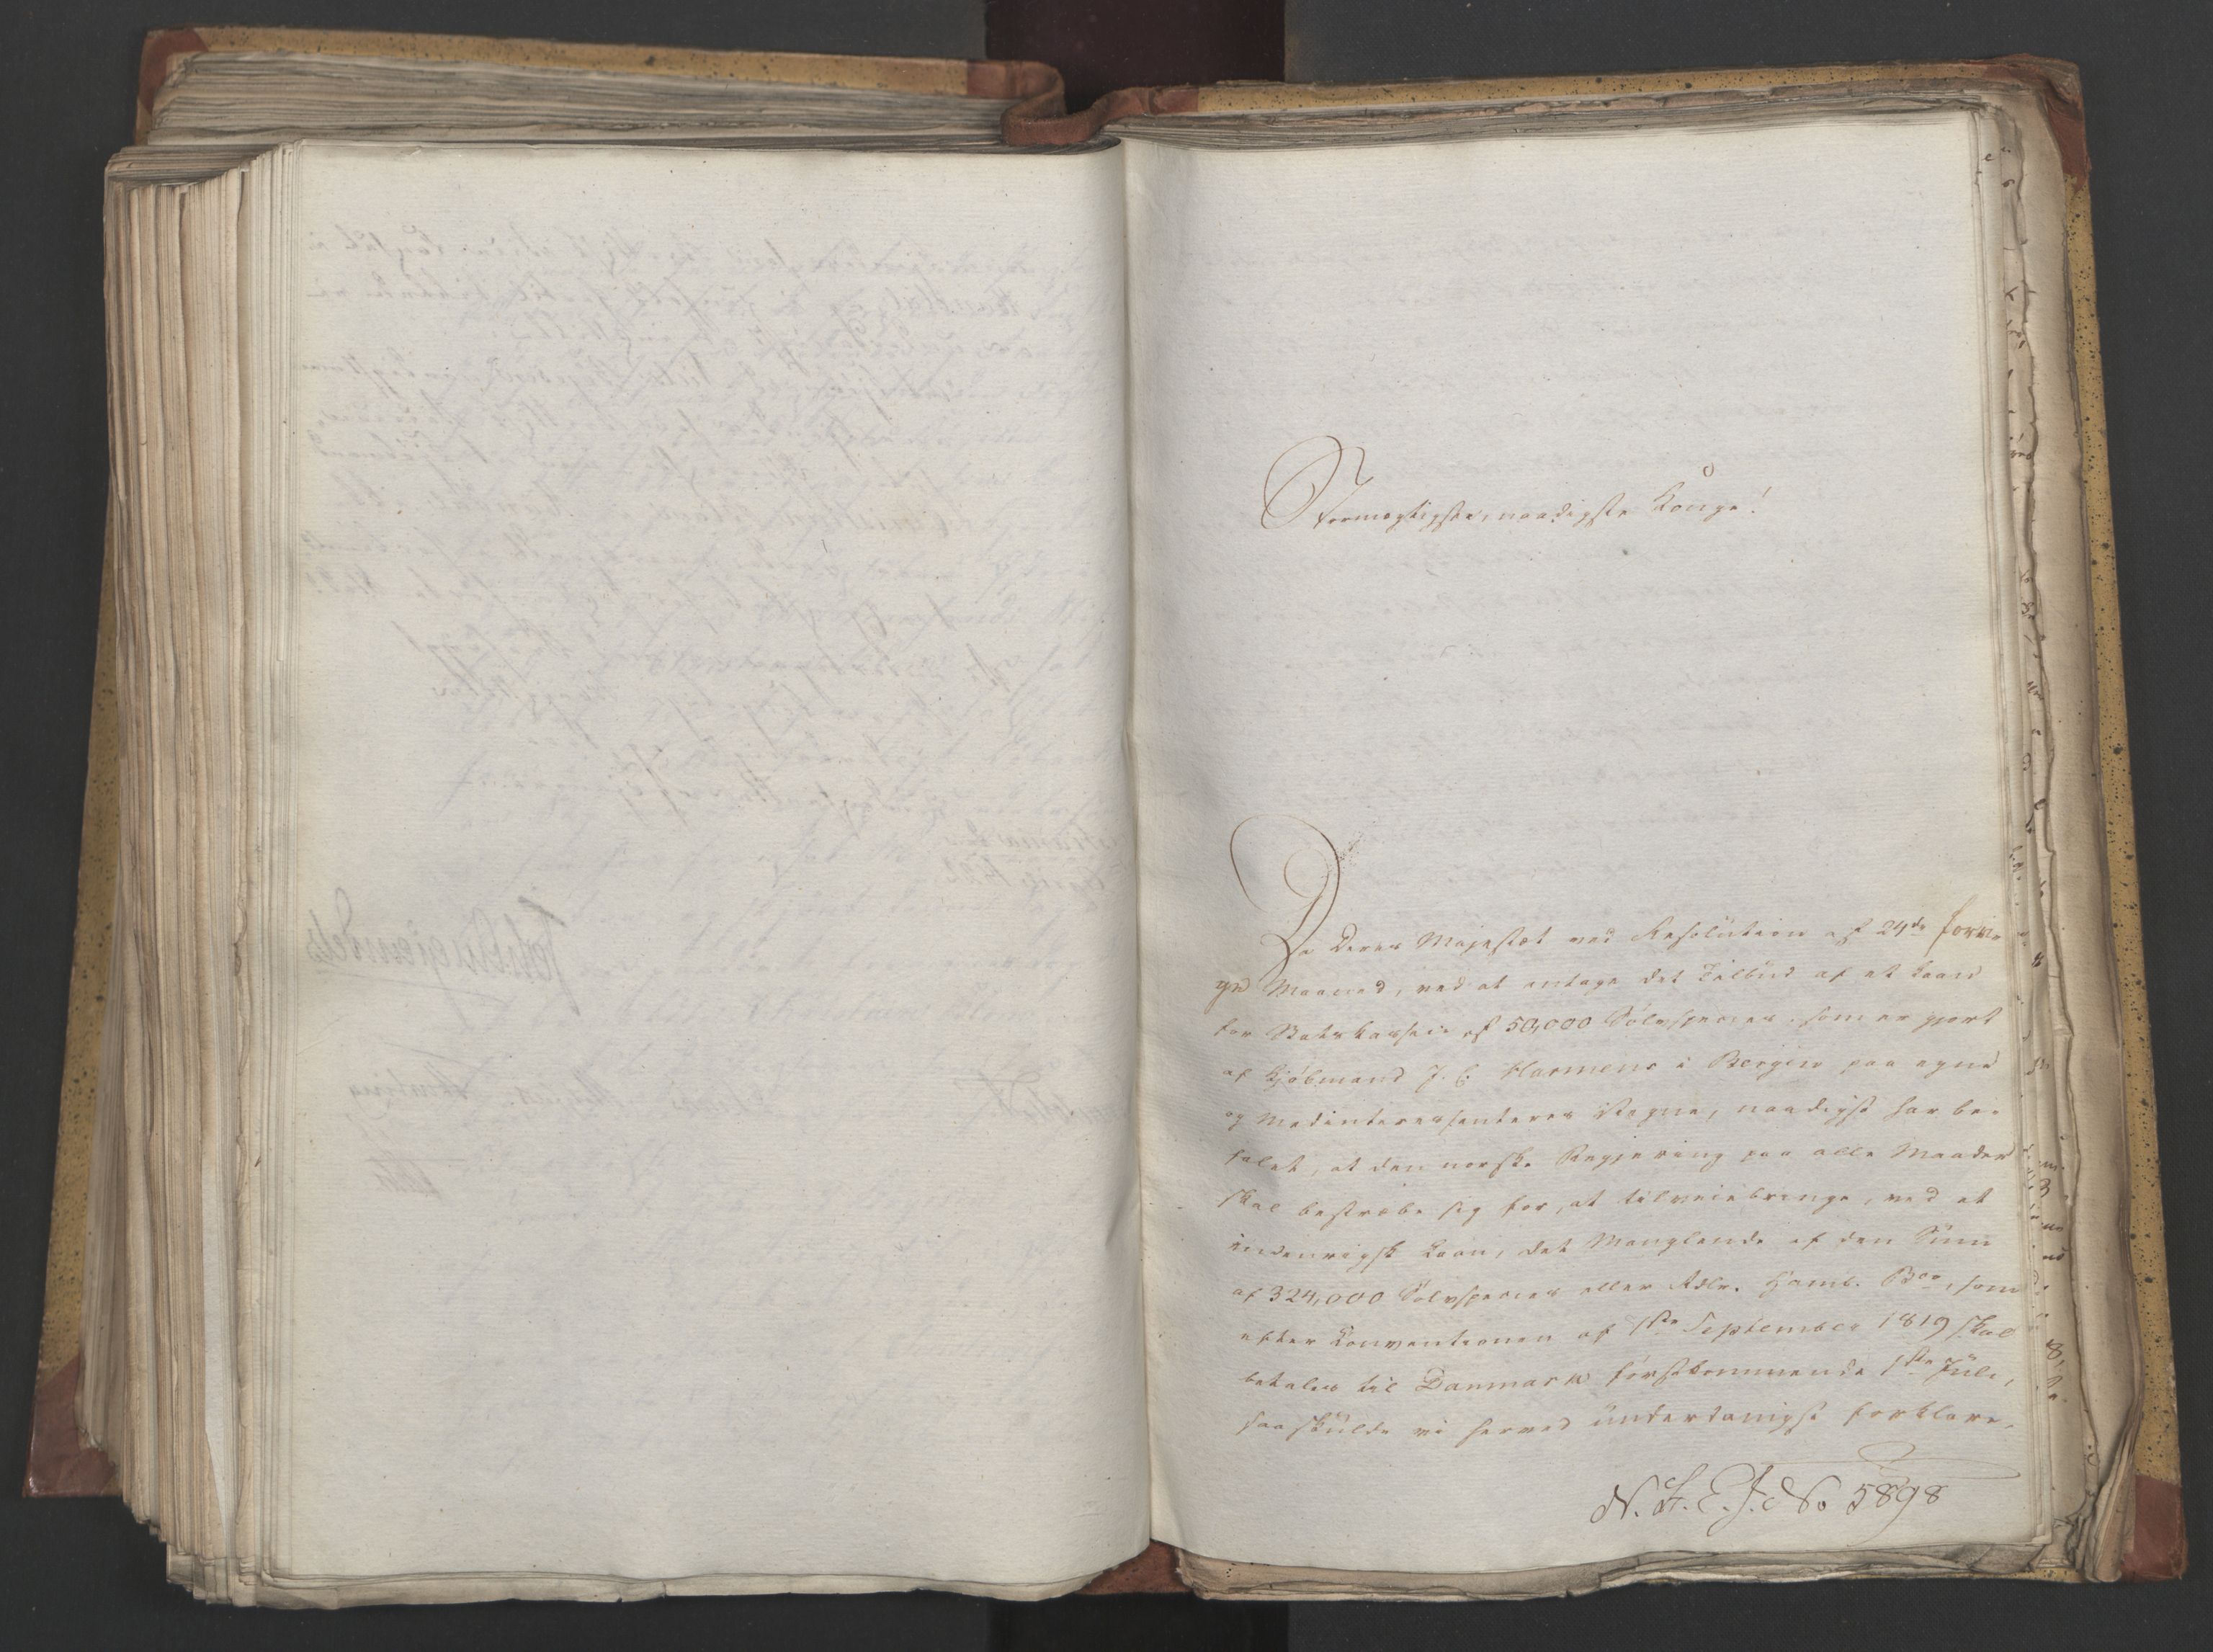 Stormægtigste, naadigste Konge!
Da Deres Majestæt ved Resolution af 24de forri-
gd Maaned, ved at antage det Tilbud af et Laan
for Statskassen af 50,000 Sølvspecies som er gjort
af Kjøbmand J. C. Harmens i Bergen paa egne
og Medinteressenteres Vegne, naadigst har be-
falet, at den norske Regjering paa alle Maader
skal bestræbe sig for, at tilveiebringe, ved et
indenrigsk Laan, det Manglende af den Sum
af 324,000 Sølvspecies eller Rdlr. Hamb. Bco, som
efter Conventionen af 1ste September 1819 skal
betales til Danmark førstkommende 1ste Juli,
saa skulde vi herved underdanigst forklare,
N. F. E. J. No 5898